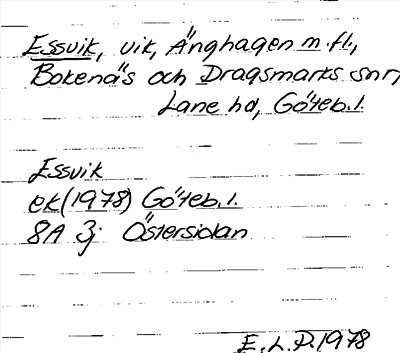 Essvik, vik, Änghagen m.fl.,
Bokenäs och Dragsmarks snr,
Lane hd, Göteb.l.
Essvik
ek(1978) Göteb.l.
8A 3j Östersidan
E.L.P.1978